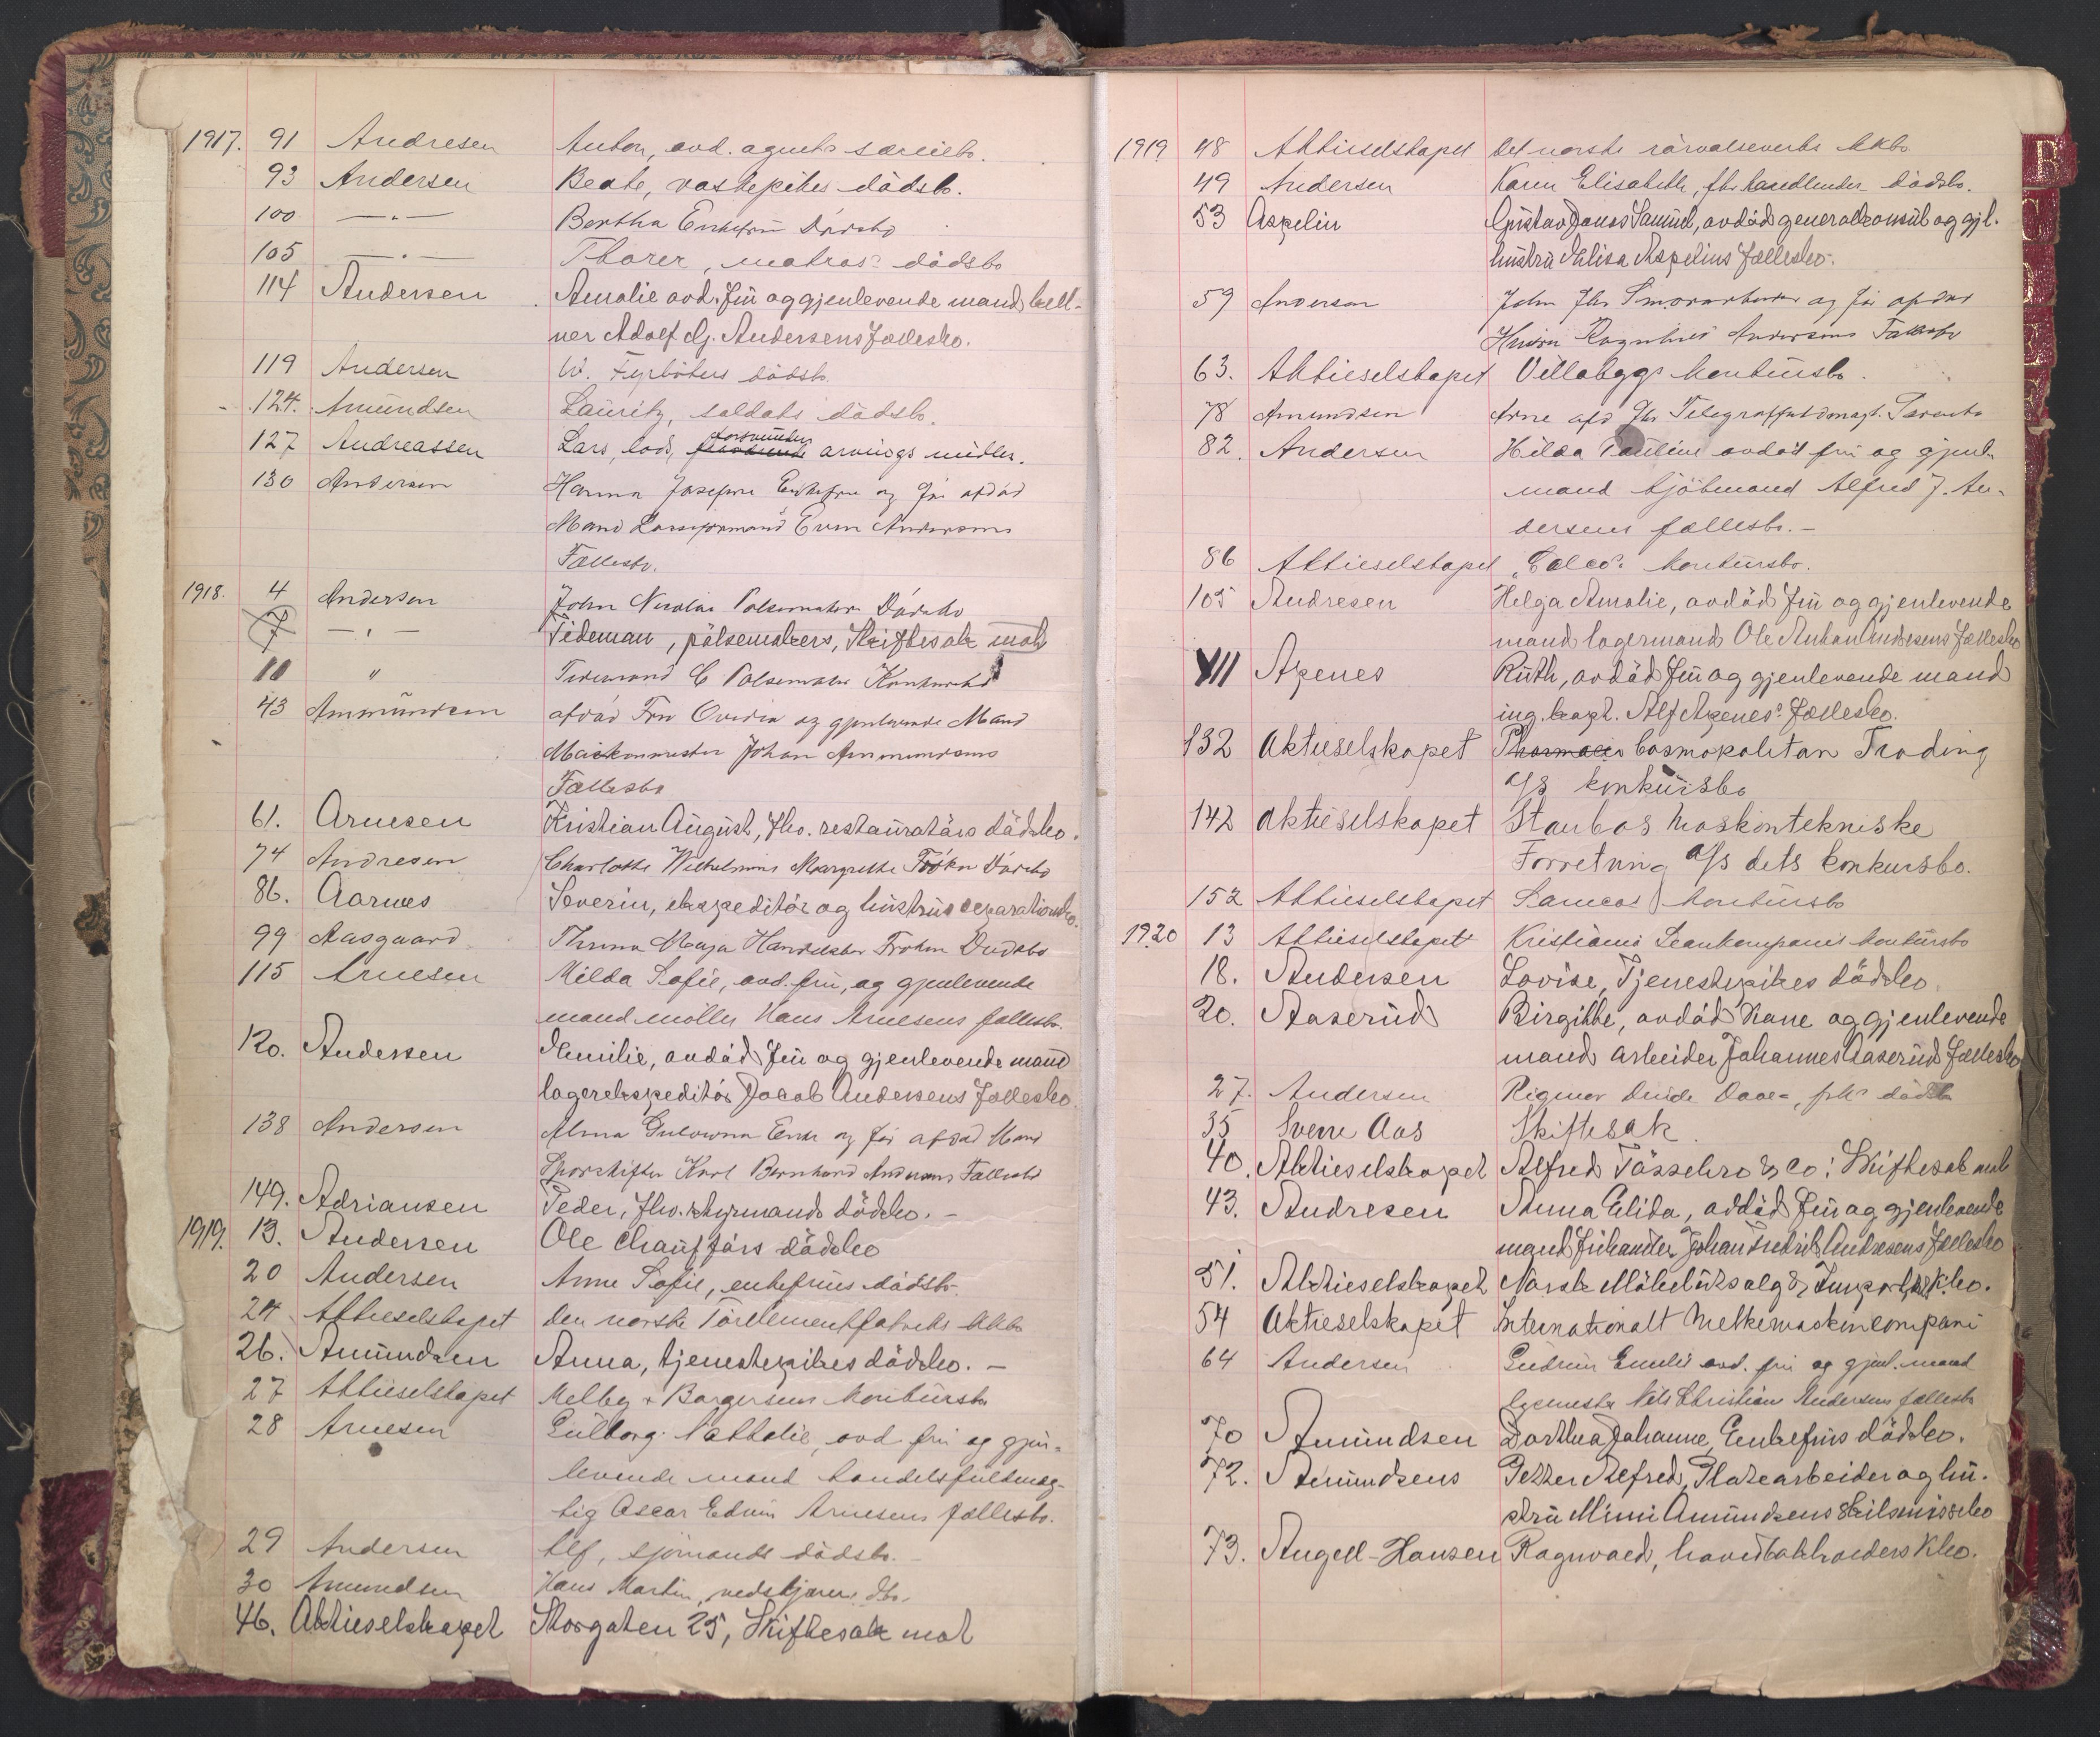 1917. 91 Andresen Anton, avd. agents særeiebo.
93 Andersen Beate, vaskepikes dödsb.
100 —"— Bertha Enkefrü Dödsbo
105 —"— Thorer, matros dödsbo
114 Andersen Amalie avd. frü og gjenlevende mand kell-
ner Adolf Andersens Fællesbo.
119 Andersen W. Fyrböters dödsb.
124. Amündsen Lauritz, soldats dödsbo.
127 Andreassen Lars, lods, forsvunden arvings midler.
130 Andersen Hanna Josefine Enkefru og før afdød
Mand Andersens
Fællesbo.
1918. 4 Andersen John Nicolai Pølsemaker Dødsbo
7 —"— Tideman, pölsemakers, Skiftesak mot
10 " Tidemand C Pølsemaker Konkursbo
43 Ammündsen afdød Fru Ovidia og gjenlevende Mand
Maskinmester Johan Ammundsens
Fællesbo
61. Arnesen Kristian August, fhv. restauratörs dödsbo.
74 Andresen Charlotte Wilhelmine Margrethe Frøken Dødsbo
86. Aarnes Severin, ekspeditör og hüstrüs separationsbo.
99 Aasgaard Maja Frøken Dødsbo
115 Arnesen Milda Sofie, avd. frü, og gjenlevende
mand möller Hans Arnesens fællesbo.
120. Andersen Emilie, avdöd frü og gjenlevende mand
lagerekspeditör Jacob Andersens Fællesbo.
138 Andersen Alma Enke og før afdød Mand
Sporskifter Karl Bernhard Andersens Fællesbo
149. Adriansen Peder, fhv. styrmands dödsbo. -
1919. 13. Andersen Ole Chaufförs dödsbo
20 Andersen Anne Sofie, enkefrües dödsbo.
24 Aktieselskapet den norske Törelementfabriks kkbo
26. Amündsen Anna, tjenestepikes dödsbo. -
27 Aktieselskapet Melby & Borgersens konkürsbo
28 Arnesen Gülborg Nathalie, avd frü og gjen-
levende mand handelsfuldmæg-
tig Oscar Edvin Arnesens fællesbo.
29 Andersen Alf, sjömands dödsbo.
30 Amundsen Hans Martin, vedskjærer dbo.
46. Aktieselskapet Storgaten 25, Skiftesak mot
1919 48 Aktieselskapet Det norske rörvalseverks kkbo
49 Andersen Karen Elisabeth, fhv. handlende dödsbo.
53 Aspelin Gustav Jonas Samuel, avdöd generalkonsül og gjl.
hüstrü Elisa Aspelins Fællesbo.
59 Andersen John fhv Smörarbeider og før afdød
Hustru Ragnhild Andersens Fællesbo
63. Aktieselskapet Villabygs konkürsbo.
78 Amundsen Arne afd fhv Telegraffuldmægt. Særeiebo
82. Andersen Hilda Pauline avdöd frü og gjenl.
mand kjöbmand Alfred J. An-
dersens fællesbo. -
86 Aktieselskapet "Colco" konkürsbo.
105 Andresen Helga Amalie, avdöd frü og gjenlevende
mand lagermand Ole Anton Andresens Fællesbo
111 Apenes Rüth, avdöd frü og gjenlevende mand
ing. kapt. Alf Apenes' Fællesbo.
132 Aktieselskapet Pharmacia Cosmopolitan Trading
A/S konkürsbo
142 Aktieselskapet Staubos Maskintekniske
Forretning A/S dets konkursbo.
152 Aktieselskapet Samcos konkürsbo
1920 13 Aktieselskapet Kristiania Leankompanis konkürsbo
18. Andersen Lovise, Tjenestepikes dödsbo
20. Aaserüd Birgithe, avdöd Kone og gjenlevende
mand arbeider Johannes Aaserüds Fællesbo
27. Andersen Rigmor frk. dödsbo
35 Sverre Aas Skiftesak.
40. Aktieselskapet Alfred Tössebro & Co: Skiftesak mot
43. Andresen Anna Elida, avdöd frü og gjenlevende
mand fiskhandler Johan Fredrik Andresens Fællesbo
51. Aktieselskapet Norsk Möbelütsalg & Import, kbo.
54 Aktieselskapet Internationalt Melkemaskincompani
64 Andersen Gudrun Emilie avd. frü og gjenl. mand
Nils Christian Andersens fællesbo
70 Amündsen Dorthea Johanne, Enkefrüs dödsbo.
72. Amündsens Petter Alfred, Platearbeider og hü-
strü Mimi Amündsens skilsmissebo
73. Angell-Hansen Ragnvald, hovedbokholders kbo.
B